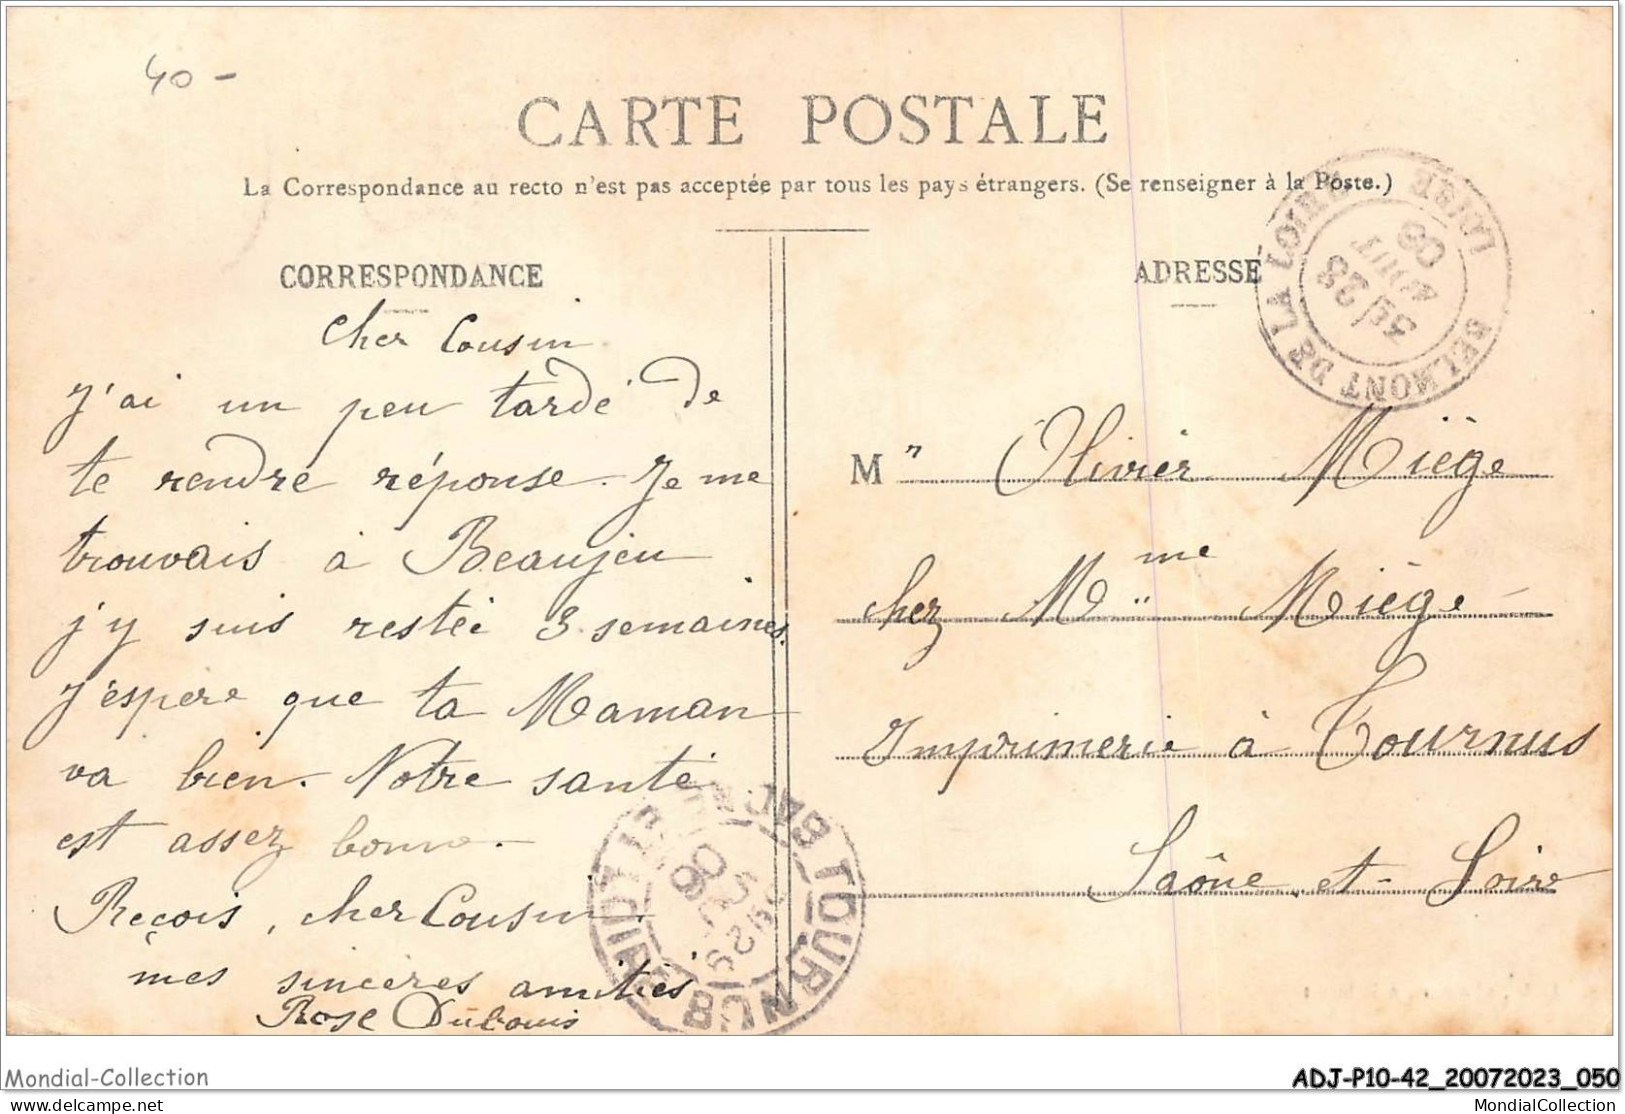 40 -
CARTE POSTALE
La Correspondance au recto n'est pas acceptée par tous les pays étrangers. (Se renseigner à la Poste.)
CORRESPONDANCE
Cher Cousin
J'ai un peu tardé de
te rendre réponse. Je me
trouvais à Beaujeu
j'y suis restée 3 semaines.
J'espère que ta Maman
va bien. Notre santé
est assez bonne.
Reçois, cher Cousin
mes sincères amitiés
Rose Dubouis
ADRESSE
BELMONT DE LA LOIRE
LOIRE
3E 23
AOUT
08
Mr Olivier Miège
chez Mme Miège
Imprimerie à Tournus
Saône-et-Loire
TOURNUS
Mondial-Collection
ADJ-P10-42_20072023_050
delcampe.net
MondialCollection